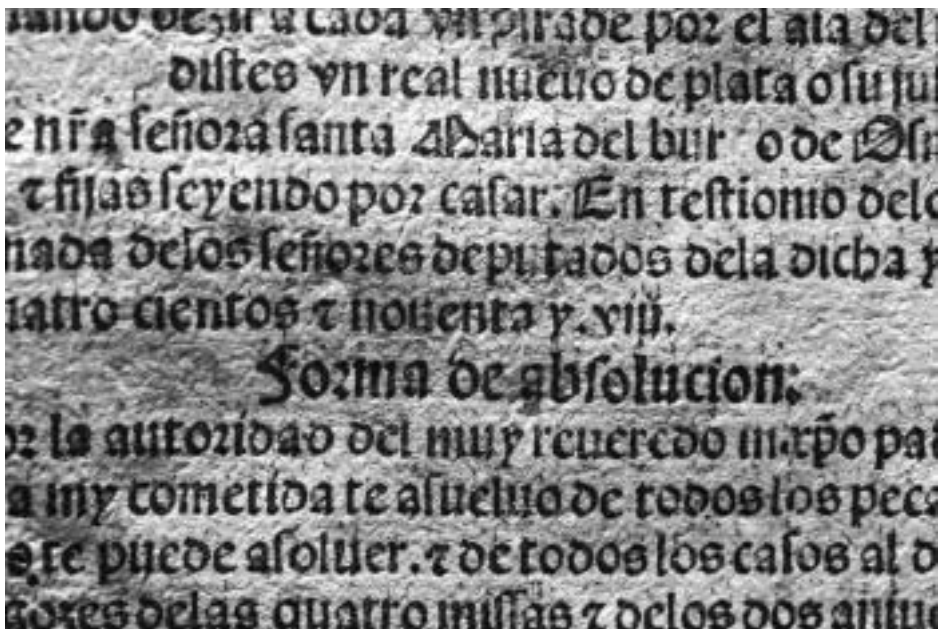 a cada vn por el dia del
distes vn real nueuo de plata o su
e nr̃a señora santa Maria del bur o de Osm
⁊ fijas seyendo por casar. En testionio delo
nada delos señores deputados dela dicha y
uatro cientos ⁊ nouenta y. viij.
Forma de absolucion:
or la autoridad del muy reueredo in.xp̃o pad
a my cometida te asueluo de todos los peca
te puede asoluer. ⁊ de todos los casos al
delas quatro missas ⁊ delos dos